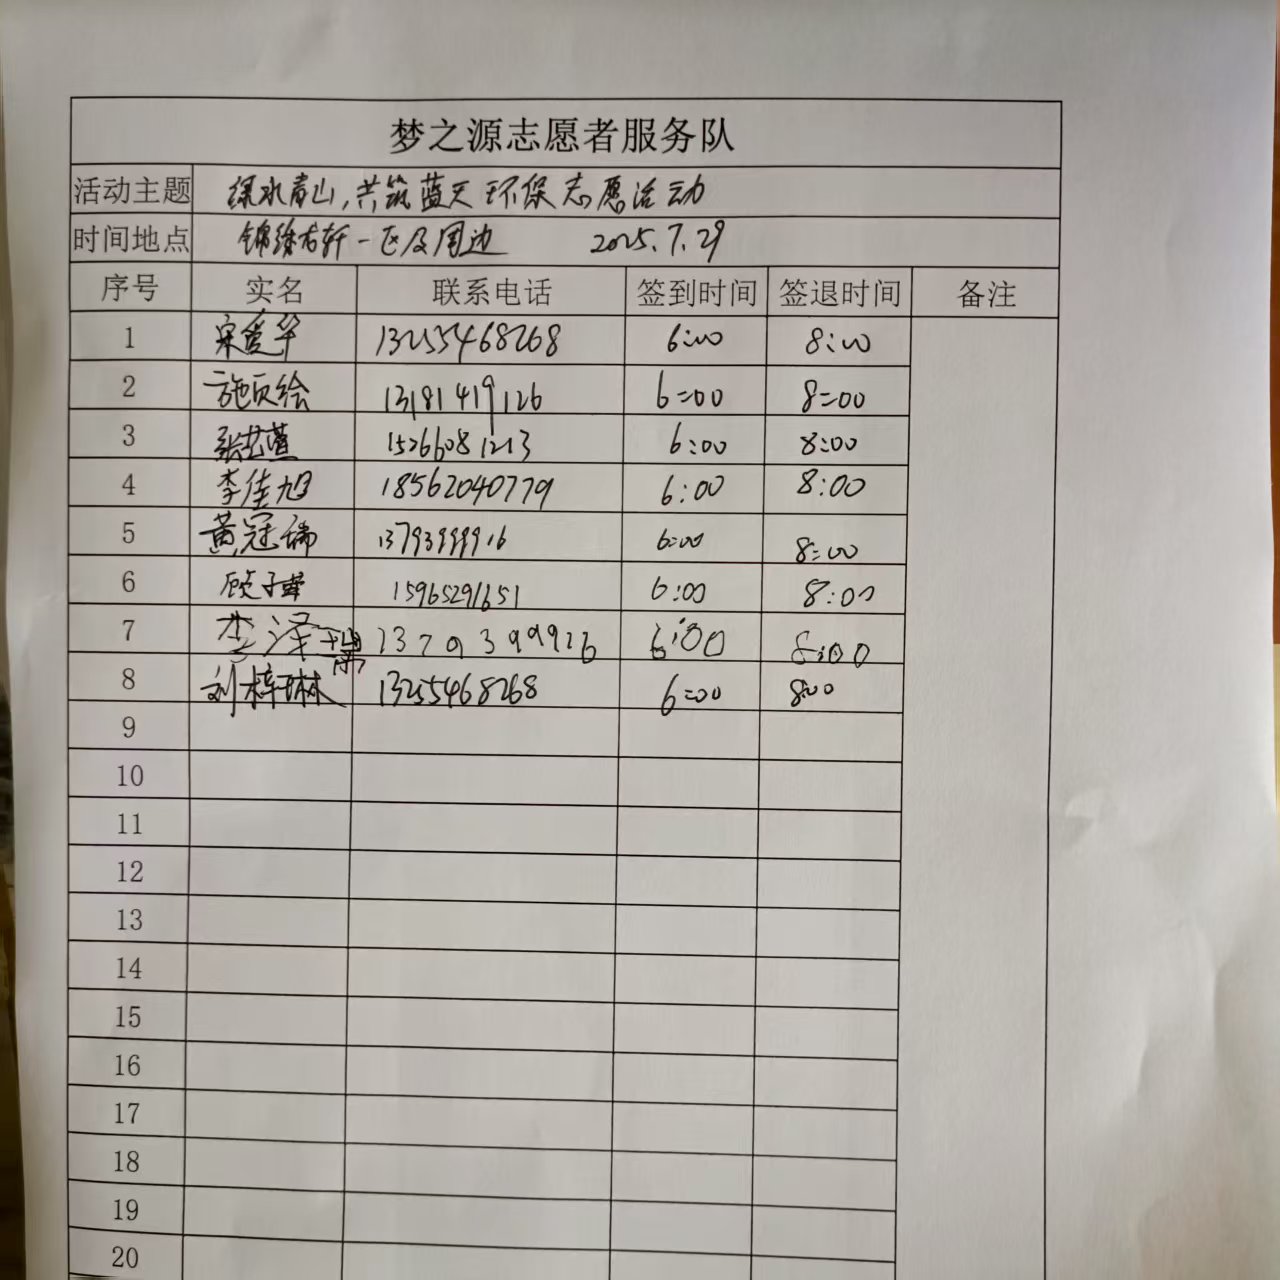 梦之源志愿者服务队
活动主题 绿水青山,共筑蓝天环保志愿活动
时间地点 锦绣吉轩一区及周边 2025.7.29
序号 实名 联系电话 签到时间 签退时间 备注
1 宋爱华 13255468268 6:00 8:00
2 施贝绘 13181419126 6:00 8:00
3 张艺萱 15266081213 6:00 8:00
4 李佳旭 18562040779 6:00 8:00
5 黄冠瑞 13793999916 6:00 8:00
6 顾子 15965291651 6:00 8:00
7 李泽瑞 13793999926 6:00 8:00
8 刘梓琳 13255468268 6:00 8:00
9
10
11
12
13
14
15
16
17
18
19
20